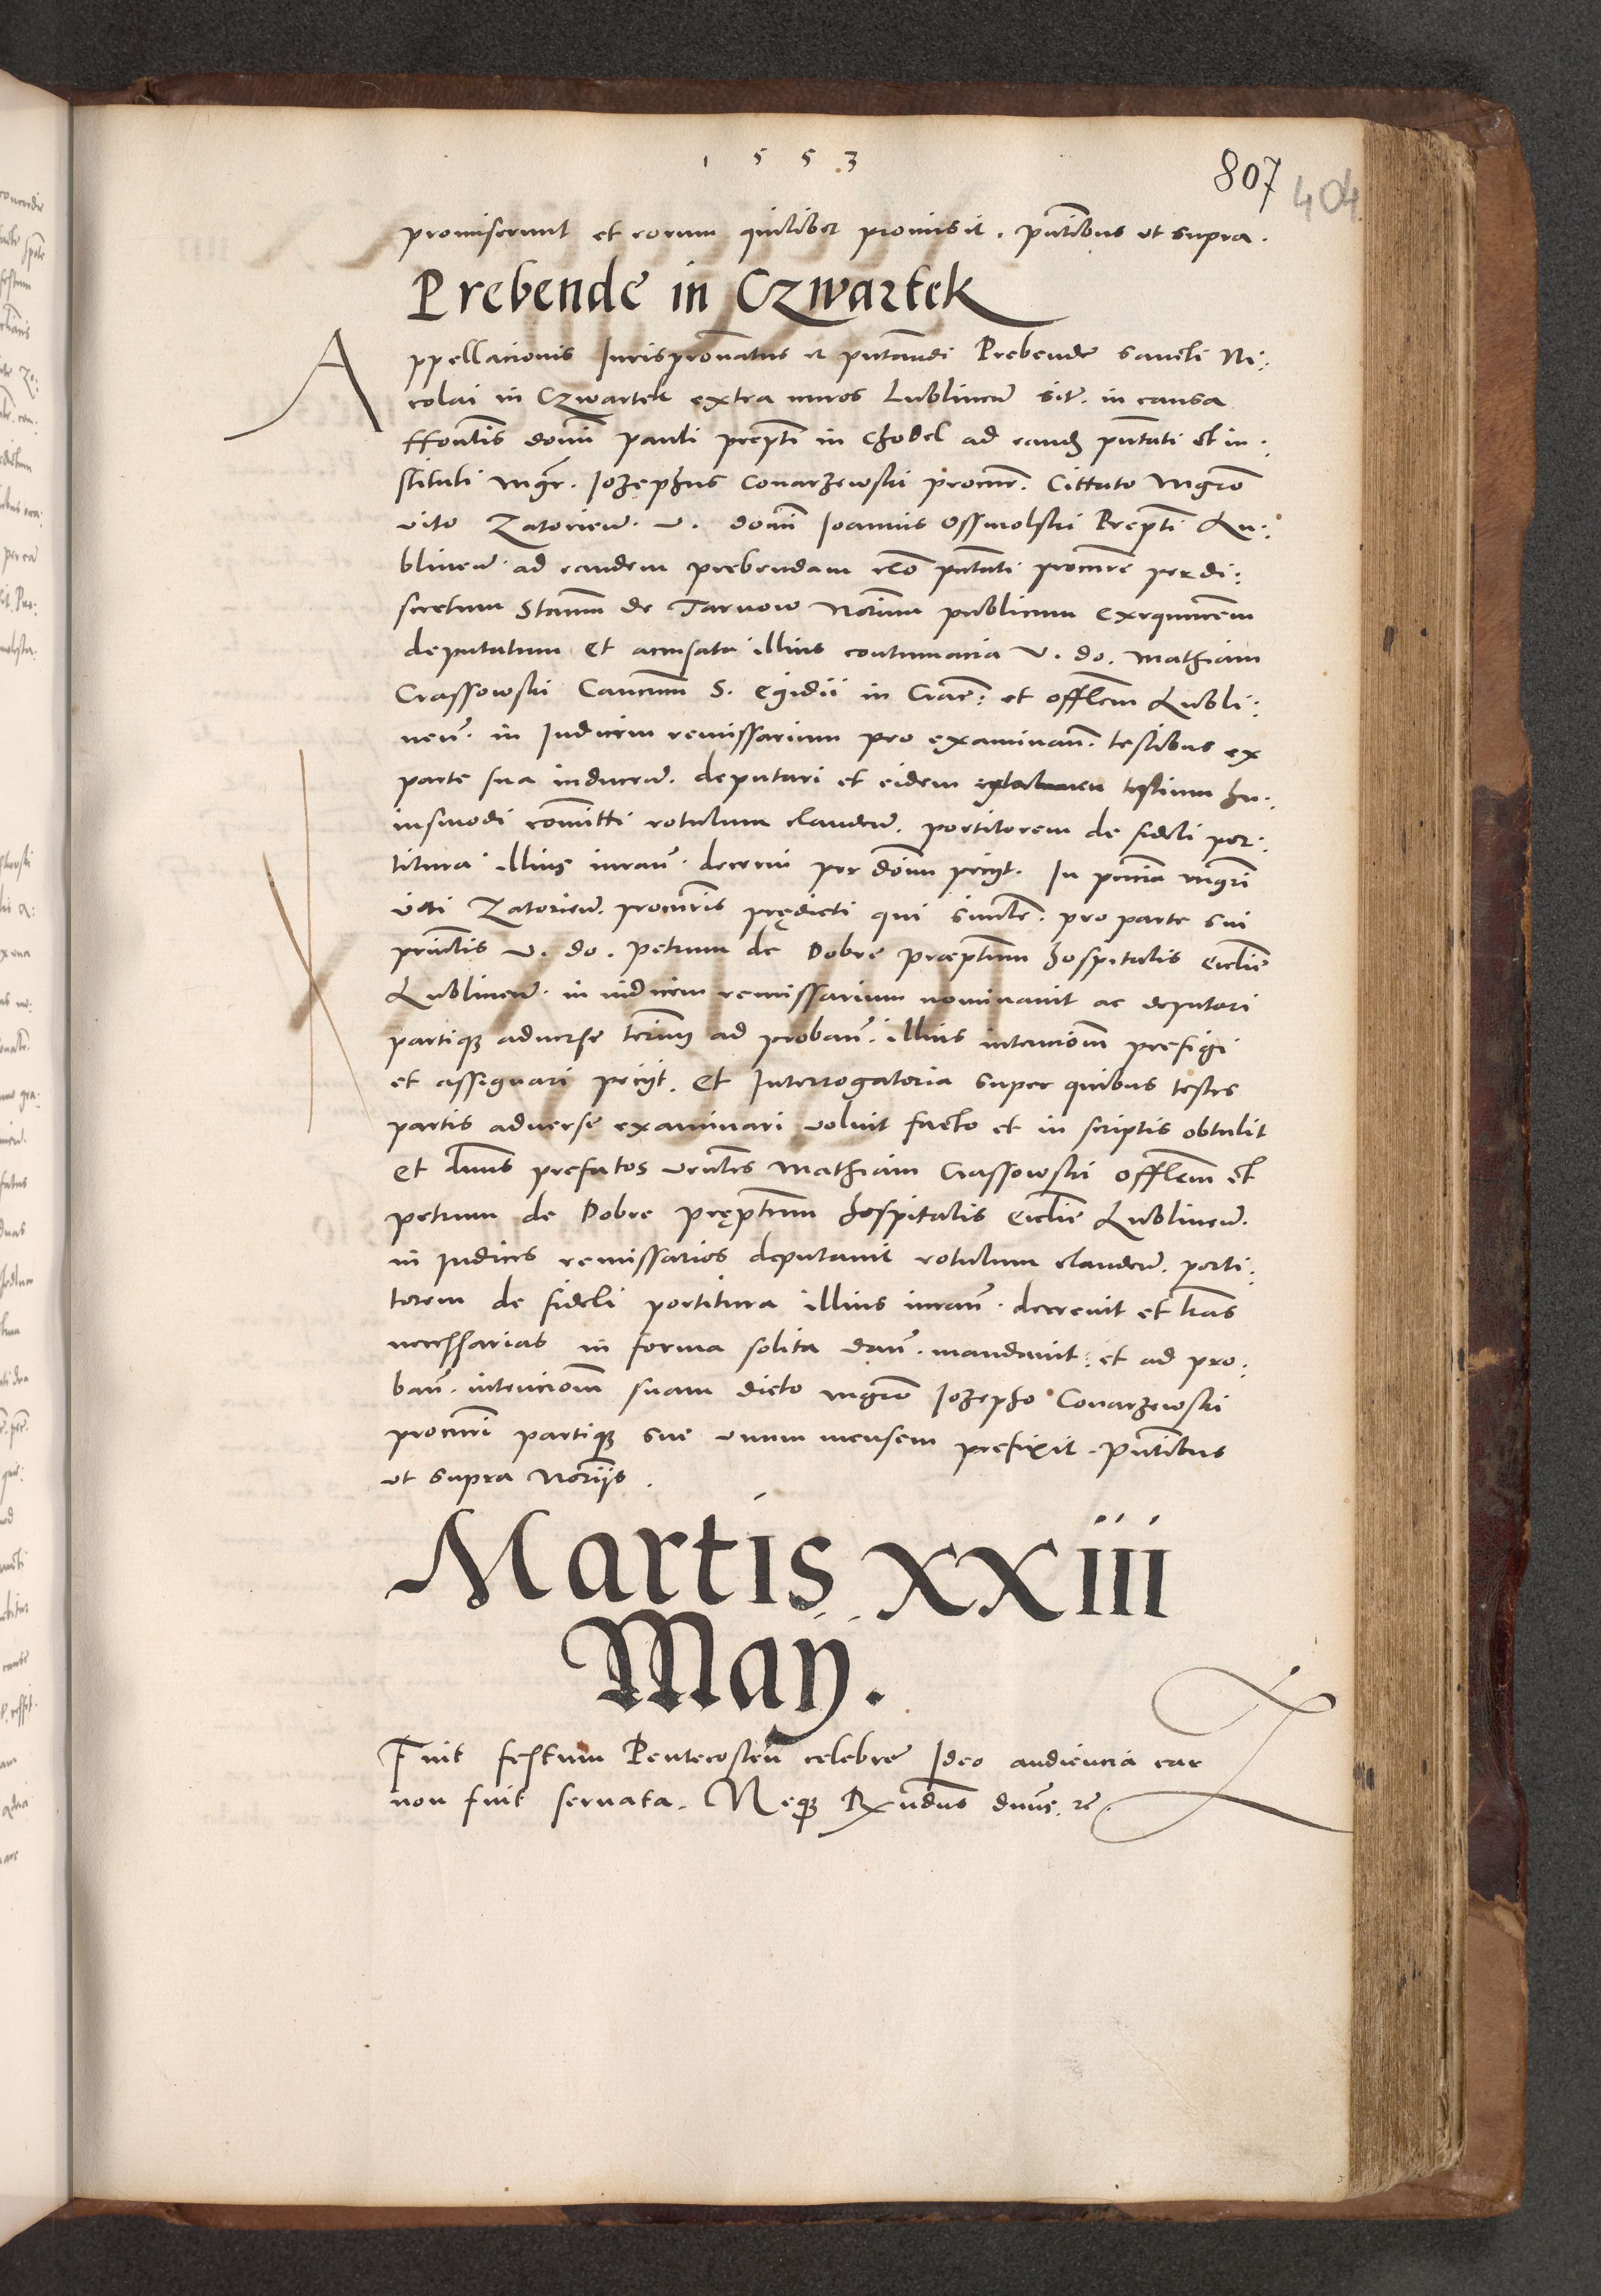 1553
807
404
promiserunt et eorum quilibet promisit. Pntibus ut supra.
Prebende in Czwartek
Appellacionis Jurispronatus et pntandi Prebende sancti Ni:
colai in Czwartek extra muros Lublinen sit. in causa
ffontis domi Pauli prepti in Chodel ad eand pntati et in:
stituti Mgr. Jozephus Conarzewski procur. Cittato Mgro
Vito Zatorien. V. domi Joannis Ossmolski Prepti Lu:
blinen ad eandem prebendam eco pntati procure per di:
scretum Stanm de Tarnow Norium publicum exequutem
deputatum et accusata illius contumacia V. do. Mathiam
Crassowski Cancum S. Egidii in Crac: et offlem Lubli:
nen. in Judicem remissarium pro examinan. testibus ex
parte sua inducen. deputari et eidem testium hu:
iusmodi comitti rotulum clauden. portitorem de fideli por:
titura illius iuran. decerni per domi peciit. In pncia mgri
Viti Zatorien. procuris prędicti qui simile. pro parte sui
princlis V. do. Petrum de Dobre preptum hospitalis ecclie
Lublinen. in iudicem remissarium nominauit ac deputari
partiq; aduerse termi ad proban. illius intencionem prefigi
et assignari peciit. Et Interrogatoria super quibus testes
partis aduerse examinari voluit facto et in scriptis obtulit
Et dnus prefatos venles Mathiam Crassowski offlem et
Petrum de Dobre pręptum hospitalis ecclie Lublinen.
in Judices remissarios deputauit rotulum clauden. porti:
torem de fideli portitura illius iuran. decreuit et lras
necessarias in forma solita dan. mandauit: et ad pro:
ban. intencionem suam dicto Mgro Jozepho Conarzewski
procuri partiq; sue unum mensem prefixit. Pntibus
ut supra Noriis.
Martis XXiii
Maÿ.
Fuit festum Pentecosten celebre Ideo audiencia eae
non fuit seruata. Neq; Rxndus dnus. re.